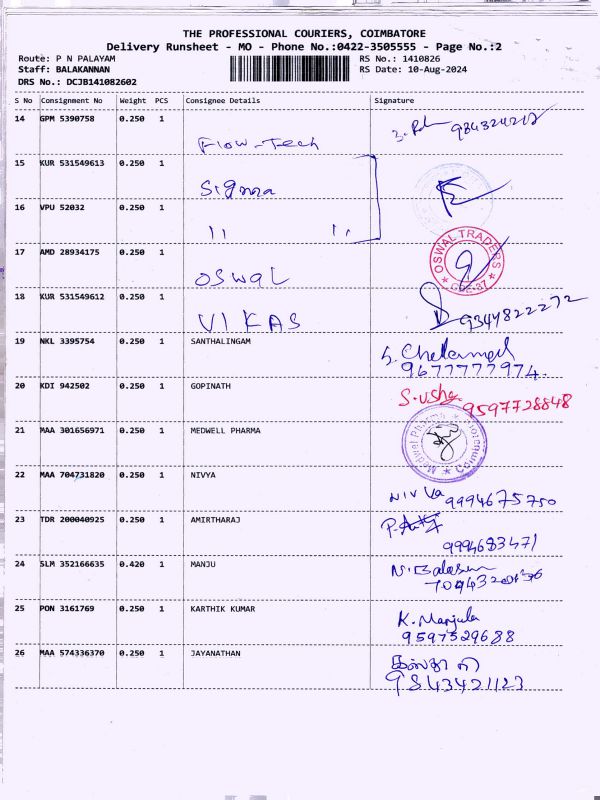 THE PROFESSIONAL COURIERS, COIMBATORE
Delivery Runsheet - MO - Phone No.:0422-3505555 - Page No.:2
Route: P N PALAYAM RS No.: 1410826
Staff: BALAKANNAN RS Date: 10-Aug-2024
DRS No.: DCJB141082602
S No Consignment No Weight PCS Consignee Details Signature
14 GPM 5390758 0.250 1 Flow-Tech
15 KUR 531549613 0.250 1 Sigma
16 VPU 52032 0.250 1 11 11
17 AMD 28934175 0.250 1 OSWAL OSWAL TRADERS CBE-37
18 KUR 531549612 0.250 1 VIKAS 9344822272
19 NKL 3395754 0.250 1 SANTHALINGAM
9677777974.
20 KDI 942502 0.250 1 GOPINATH S.usha 9597728848
21 MAA 301656971 0.250 1 MEDWELL PHARMA Medwel Pharma
22 MAA 704731820 0.250 1 NIVYA
9994675750
23 TDR 200040925 0.250 1 AMIRTHARAJ
9994683471
24 SLM 352166635 0.420 1 MANJU
25 PON 3161769 0.250 1 KARTHIK KUMAR K. Manjula
9597529688
26 MAA 574336370 0.250 1 JAYANATHAN
9843421123